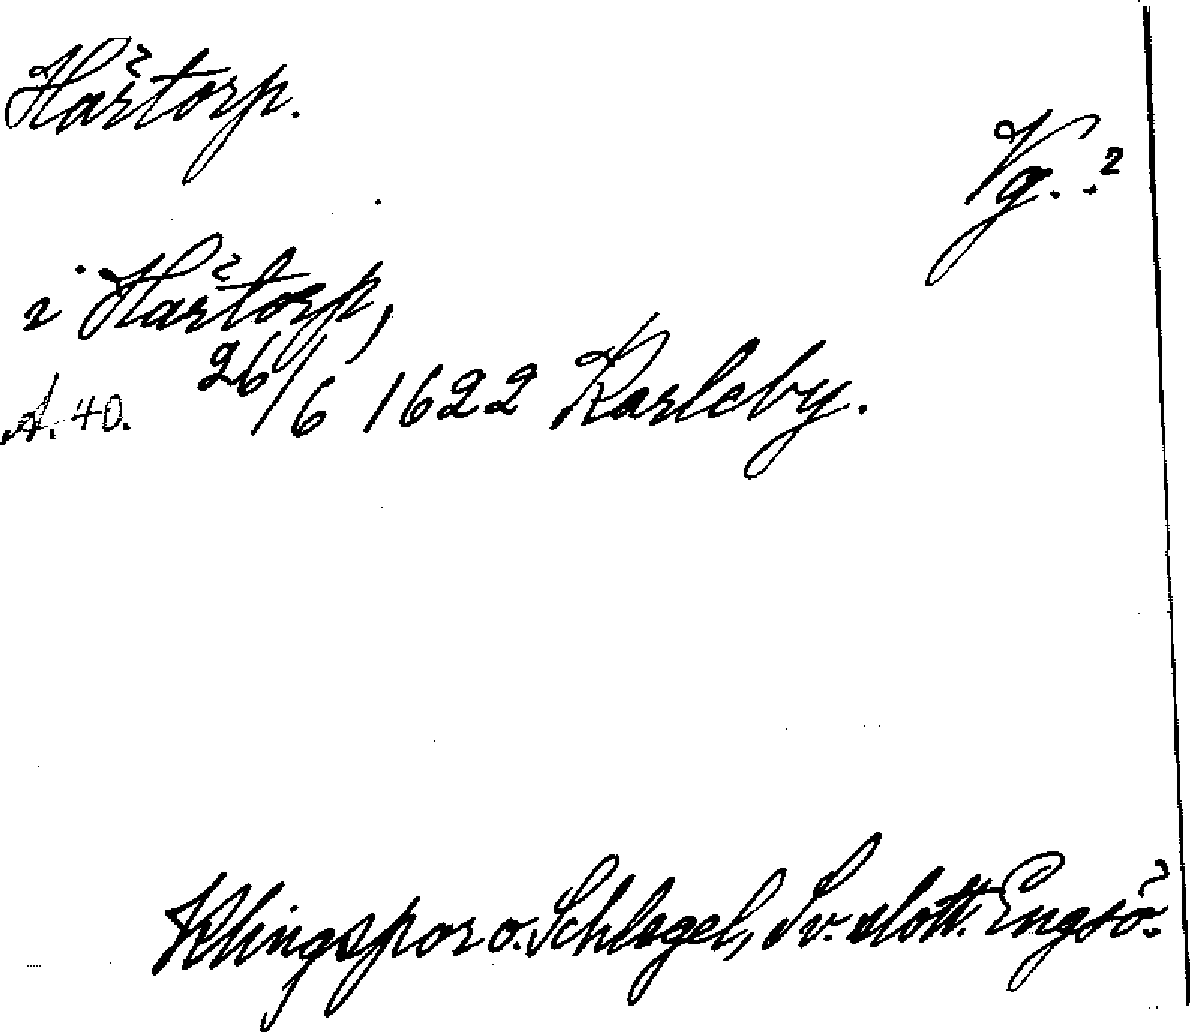 Hårtorp.
Vg. ?
i Hårtorp,
26/6 1622 Karleby.
A. 40.
Klingspor o. Schlegel, Sv. slott. Engsö.